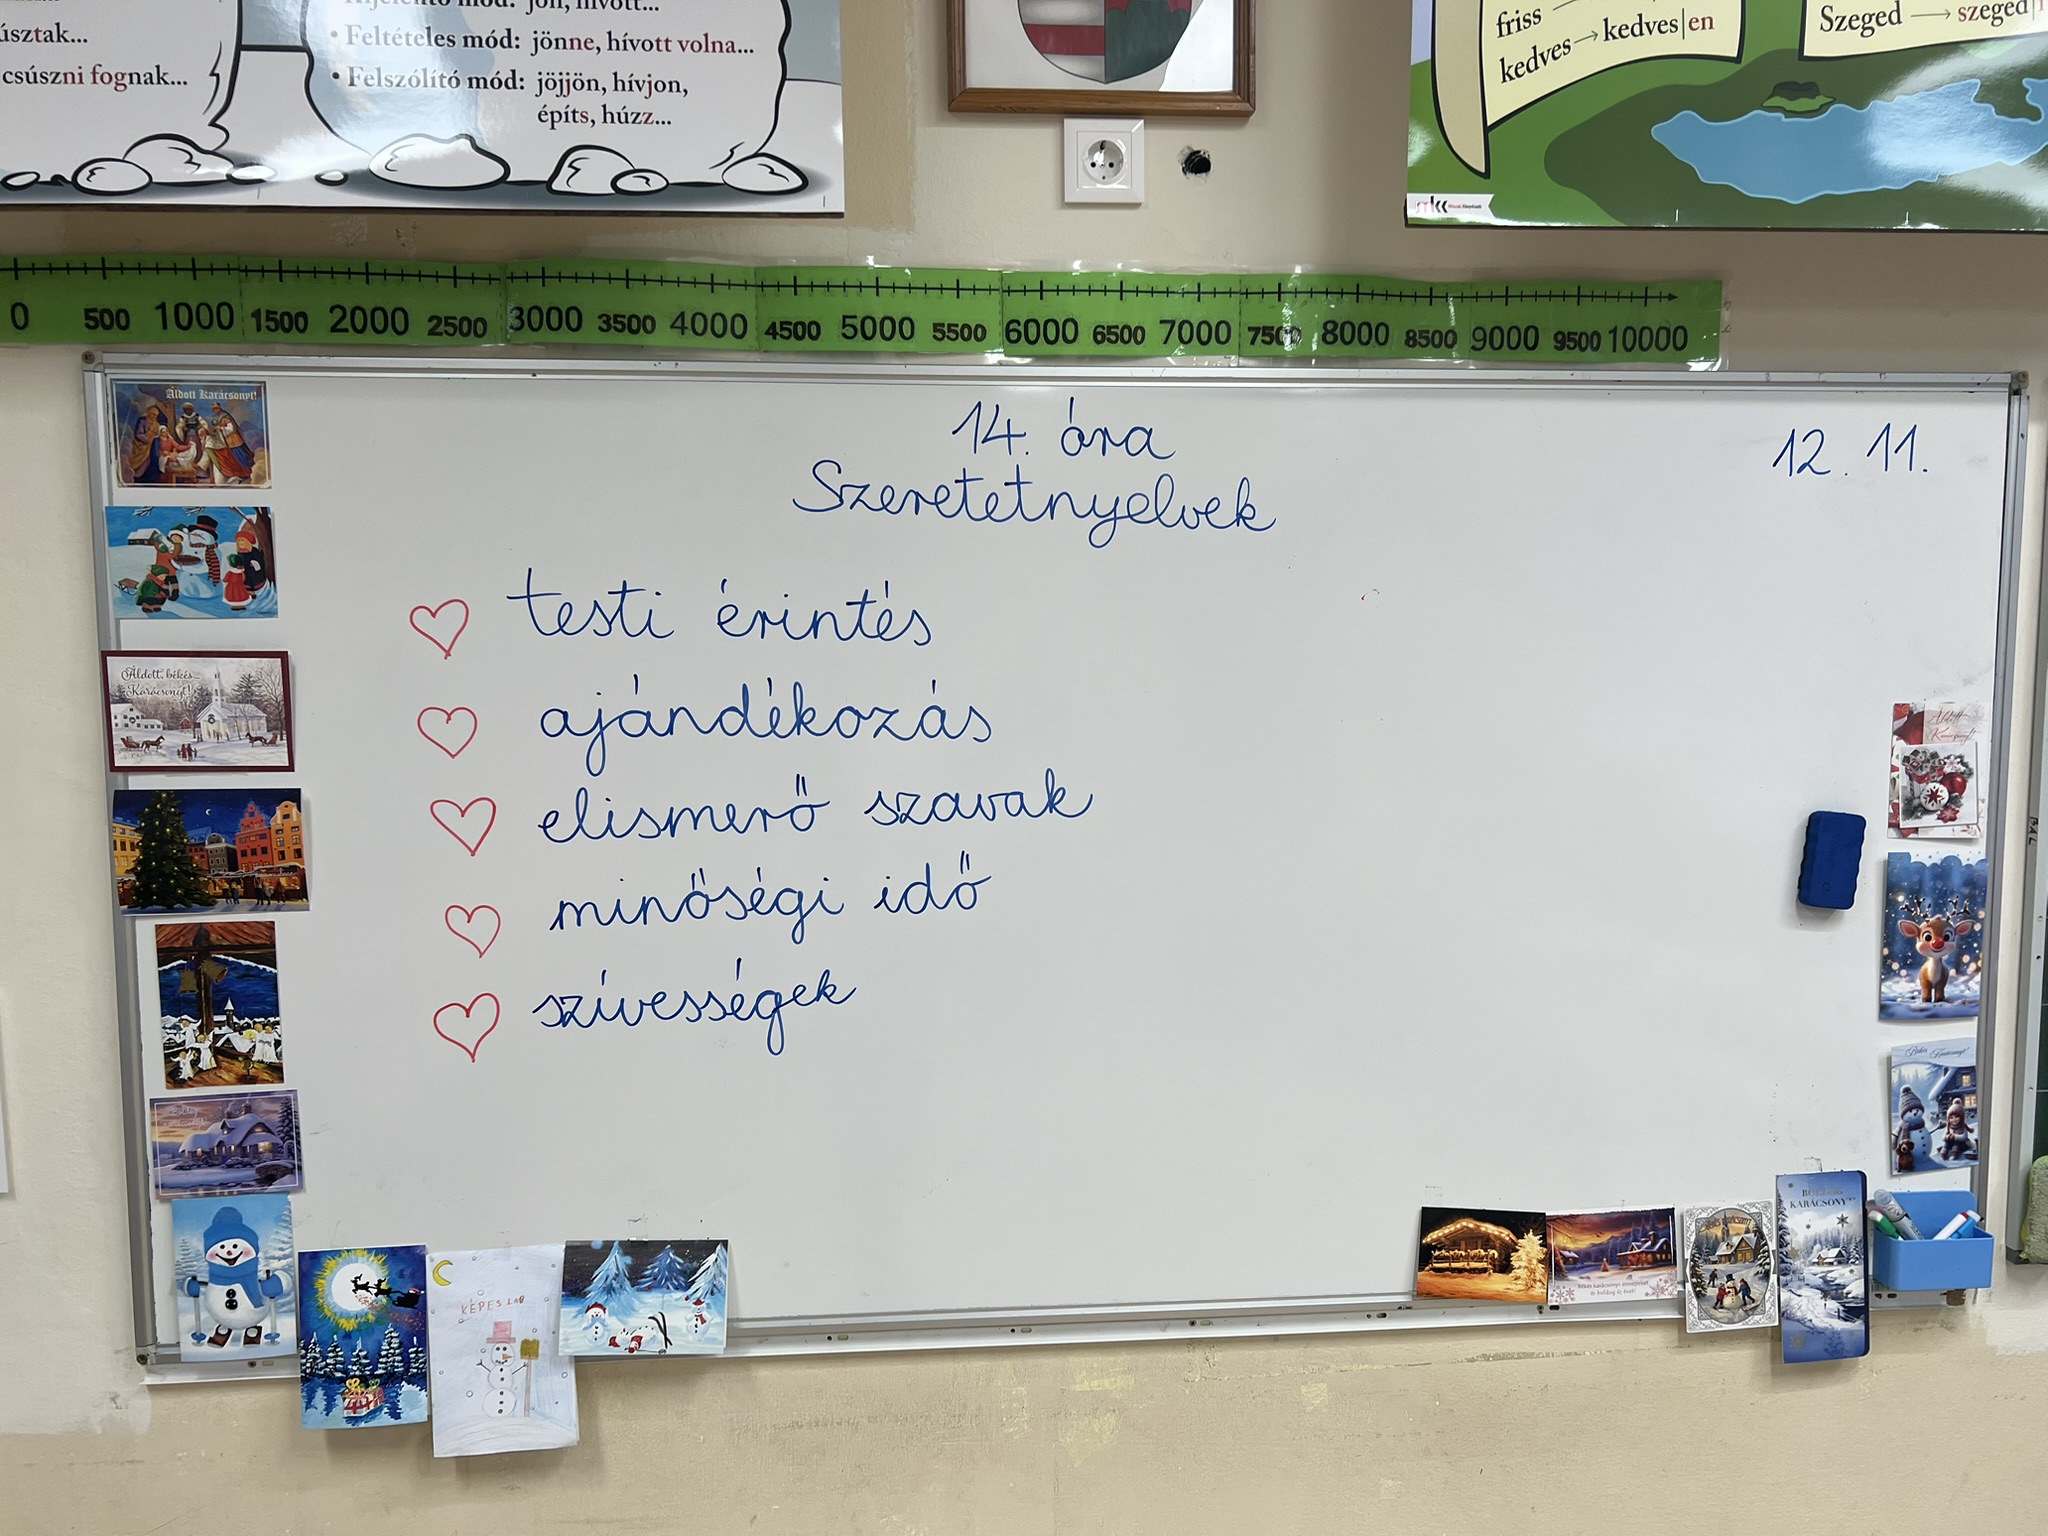 úsztak...
csúszni fognak...
Kijelentő mód: jön, hívott...
• Feltételes mód: jönne, hívott volna...
• Felszólító mód: jöjjön, hívjon,
építs, húzz...
friss
kedves → kedves|en
Szeged → szeged|i
mkk
0 500 1000 1500 2000 2500 3000 3500 4000 4500 5000 5500 6000 6500 7000 7500 8000 8500 9000 9500 10000
14. óra
12. 11.
Szeretetnyelvek
testi érintés
ajándékozás
elismerő szavak
minőségi idő
szívességek
Áldott Karácsonyt!
Áldott, békés
Karácsonyt!
KÉPES LAP
Áldott
Karácsonyt!
Békés karácsonyi ünnepeket
és boldog új évet!
KARÁCSONYT